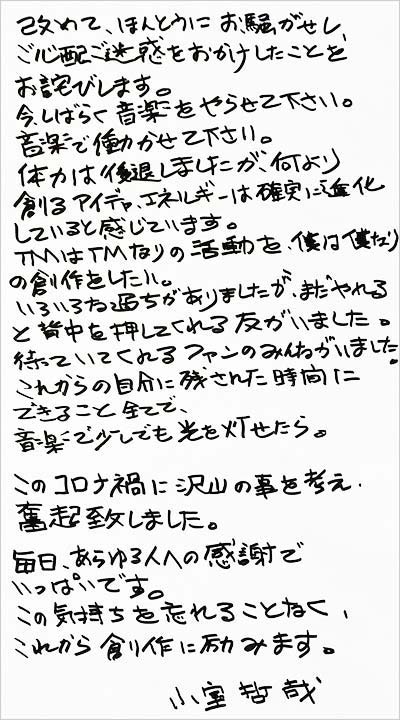 改めて、ほんとうに お騒がせし、
ご心配ご迷惑をおかけしたことを
お詫びします。
今しばらく音楽をやらせて下さい。
音楽で働かせて下さい。
体力は後退しましたが、何より
創るアイデア、エネルギーは確実に進化
していると感じています。
TMはTMなりの活動を、僕は僕なり
の創作をしたい。
いろいろな過ちがありましたが、まだやれる
と背中を押してくれる友がいました。
待っていてくれるファンのみんながいました。
これからの自分に残された時間に
できること全てで、
音楽で少しでも光を灯せたら。
このコロナ禍に沢山の事を考え、
奮起致しました。
毎日、あらゆる人への感謝で
いっぱいです。
この気持ちを忘れることなく、
これから創作に励みます。
小室哲哉